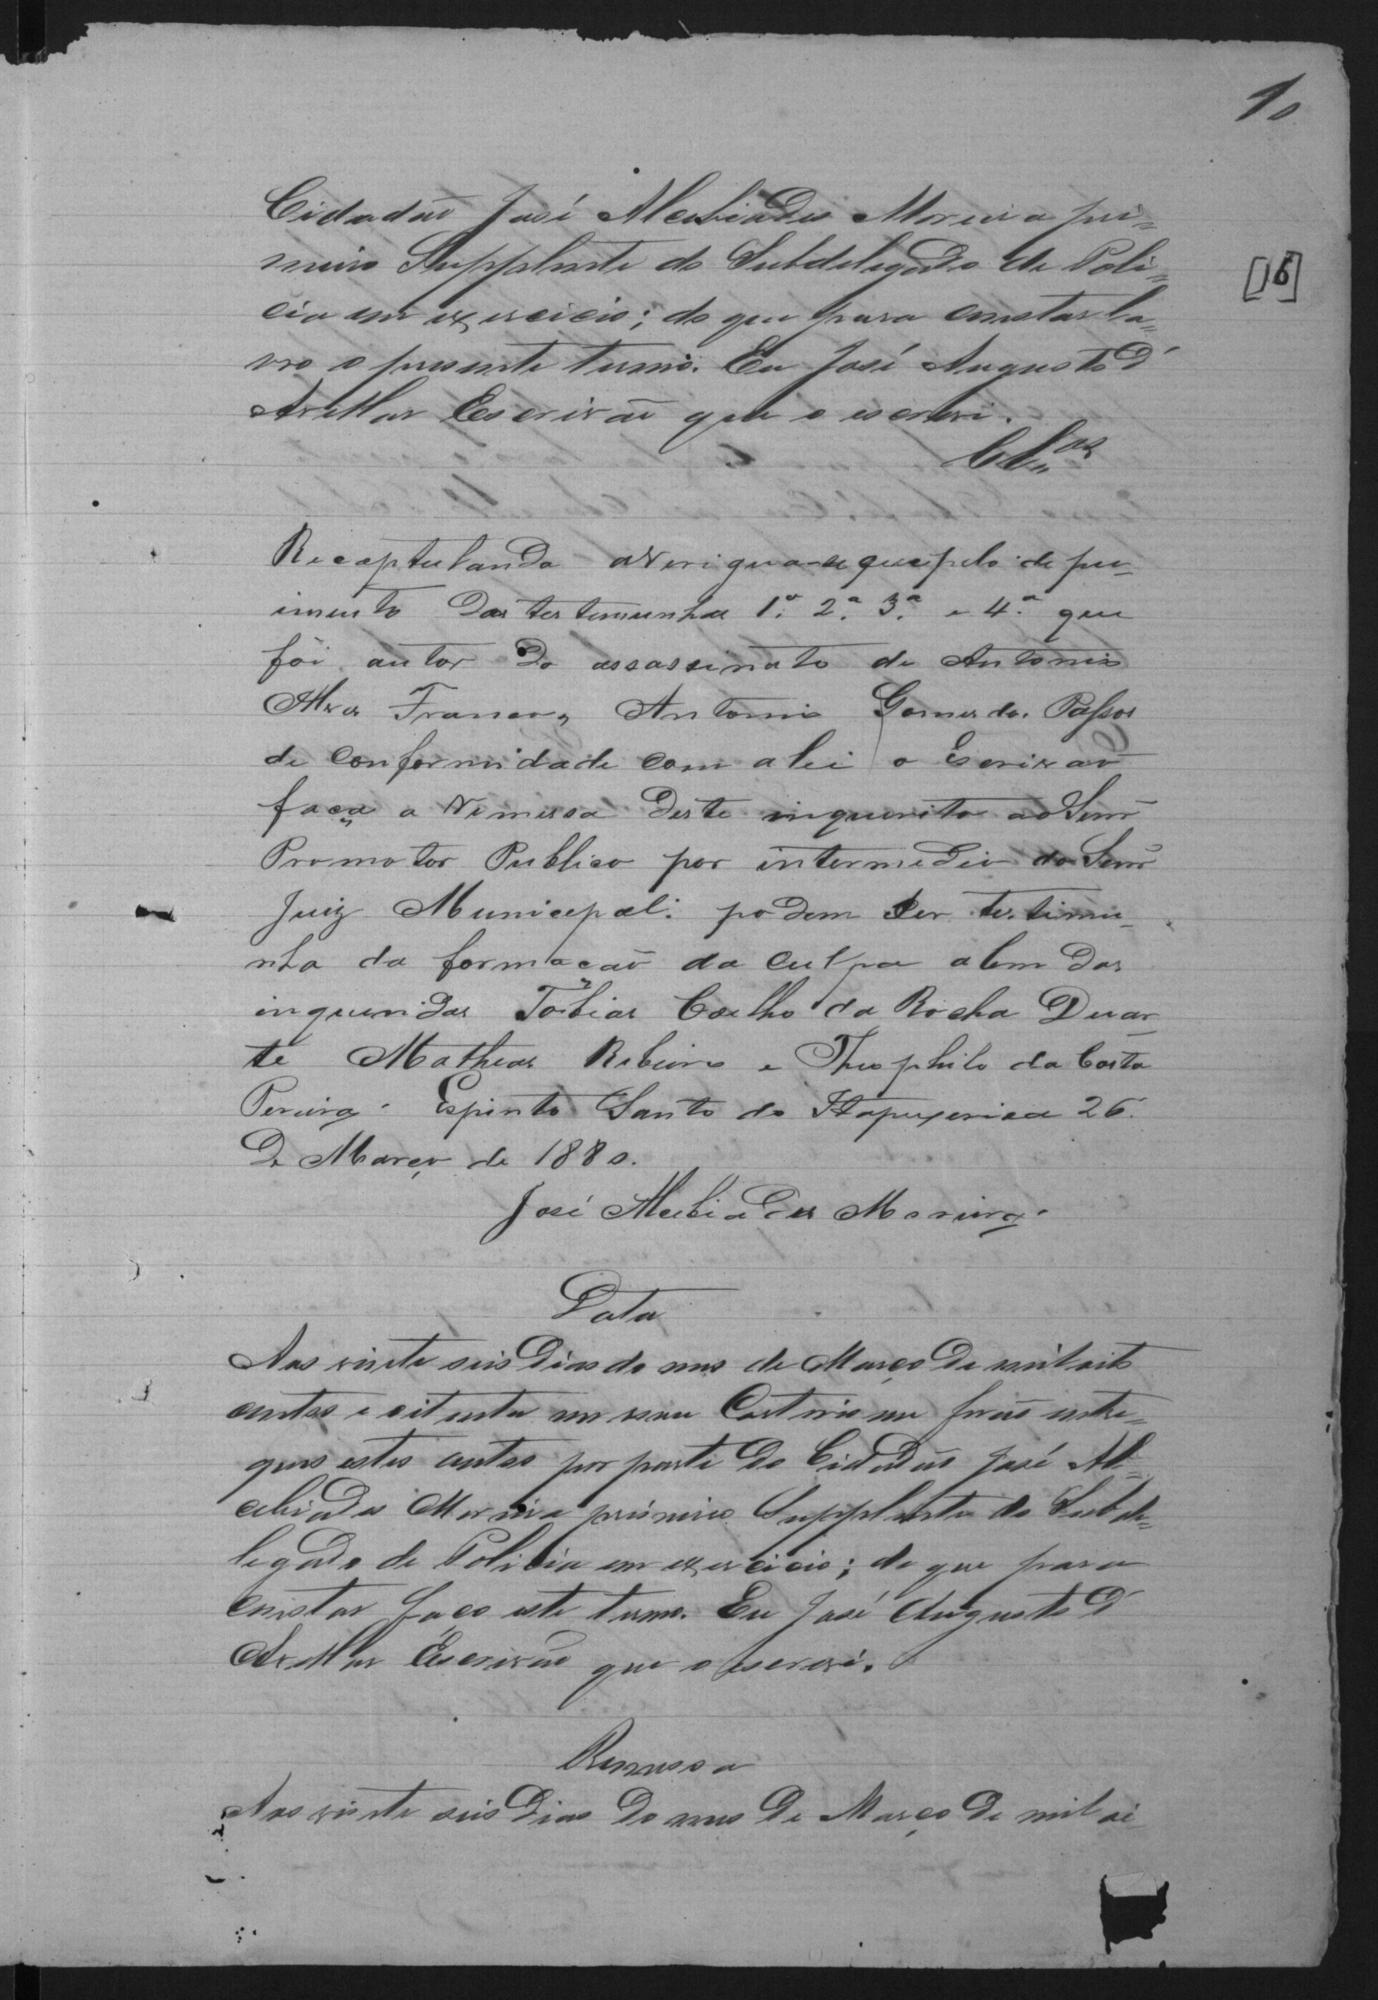 10
[16]
Cidadão José Alcebiades Moreira pri-
meiro Supplente do Subdelegado de Poli-
cia em exercicio; do que para constar la-
vro o presente termo. Eu José Augusto d'
Avellar Escrivão que o escrevi.
Clos
Recaptulando averigua-se que pelo depu-
imento das testemunhas 1ª. 2ª. 3ª. e 4ª. que
foi autor do assassinato de Antonio
Alves Franco, Antonio Gomes dos Passos
de conformidade com a lei o Escrivão
faça a Remessa deste inquerito ao Senr
Promotor Publico por intermedio do Senr
Juiz Municepal: podem ser testimu-
nha da formação da culpa alem das
inqueridas Tobias Coelho da Rocha Duar-
te Matheos Ribeiro e Theophilo da Costa
Pereira. Espirito Santo do Itapecerica 26
De Março de 1880.
José Alcebiades Moreira.
Data
Aos vinte seis Dias do mes de Março de mil oito
centos e oitenta em meu Cartorio me forão entre-
gues estes autos por parte do Cidadão José Al-
cebiades Moreira primeiro Supplente do Subde-
legado de Policia em exercicio; do que para
constar faço este termo. Eu José Augusto d'
Avellar Escrivão que o escrevi.
Remessa
Aos vinte seis Dias do mes de Março de mil oi